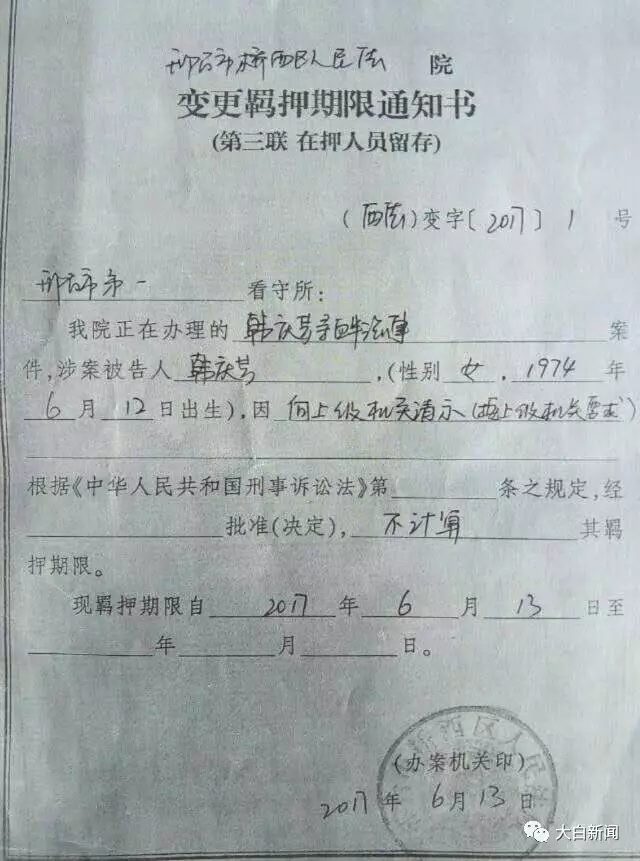 邢台市桥西区人民法 院
变更羁押期限通知书
(第三联 在押人员留存)
(西法)变字〔2017〕1 号
邢台市第一 看守所:
我院正在办理的 韩庆芳寻衅滋事 案
件,涉案被告人 韩庆芳 ,(性别 女 ,1974 年
6 月 12 日出生),因 向上级机关请示(按上级机关要求)
根据《中华人民共和国刑事诉讼法》第 条之规定,经
批准(决定), 不计算 其羁
押期限。
现羁押期限自 2017 年 6 月 13 日至
年 月 日。
桥西区人民法
(办案机关印)
2017 年 6 月 13 日
大白新闻